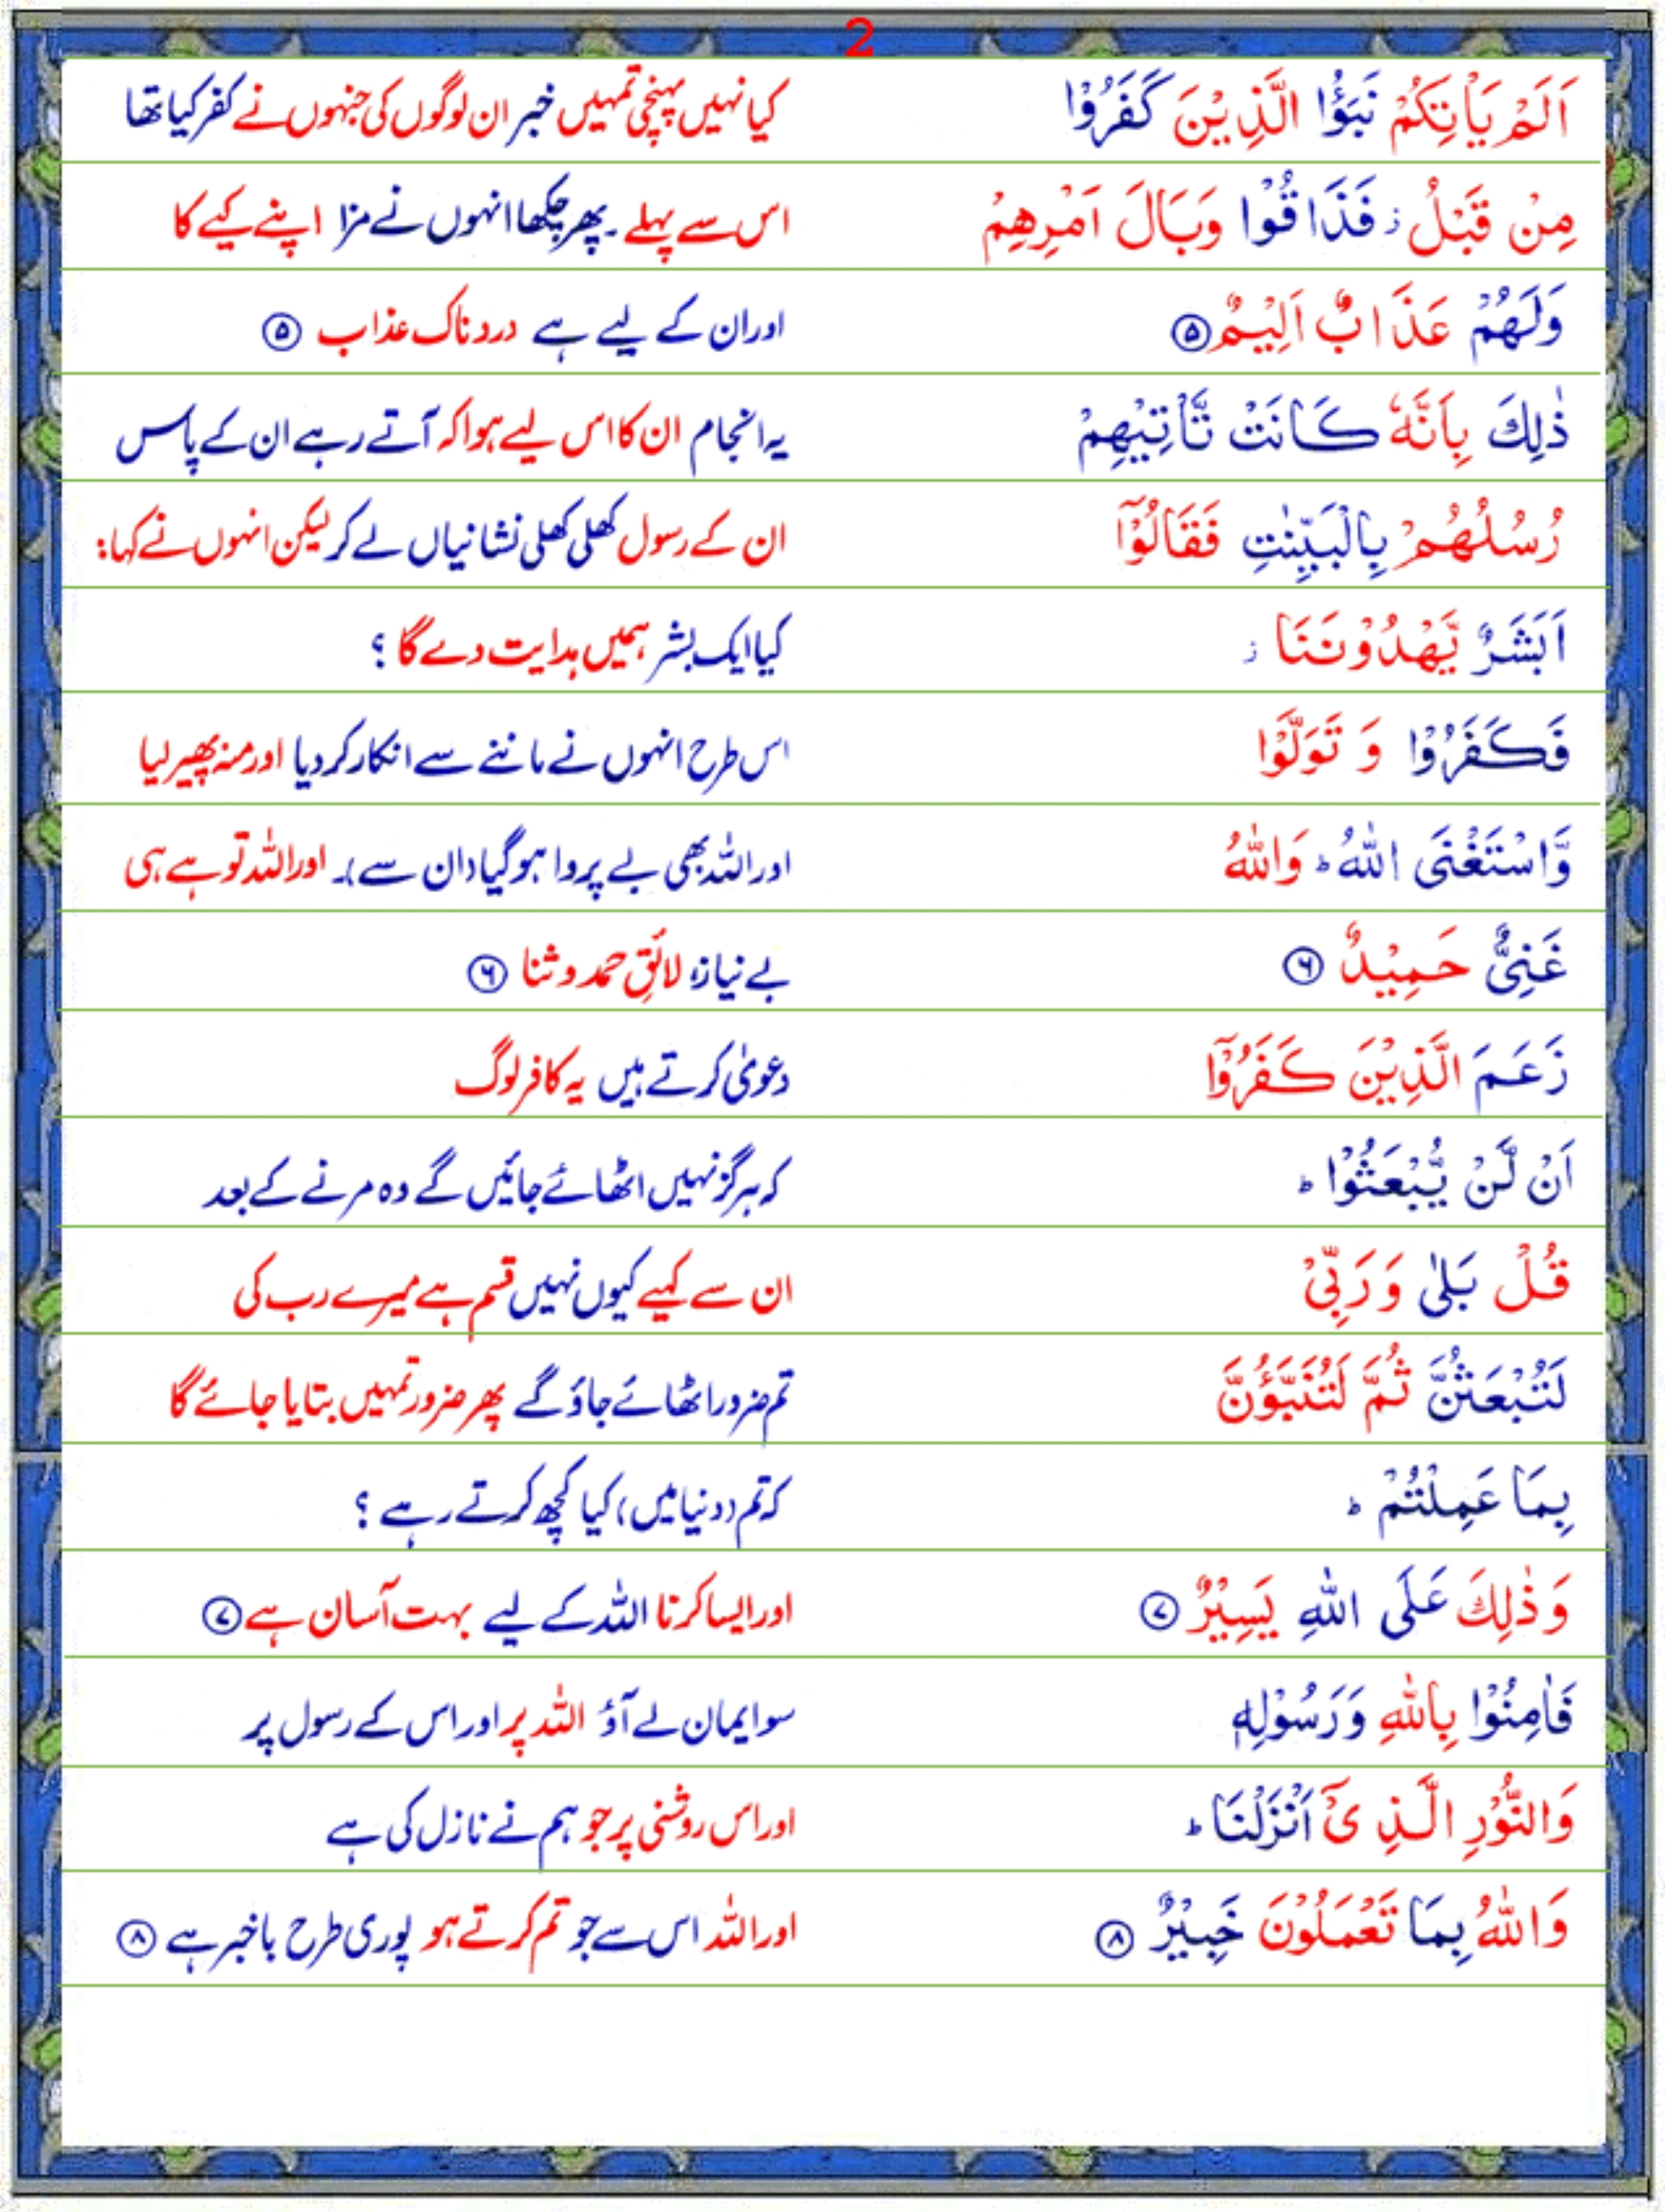 2
اَلَمْ يَاْتِكُمْ نَبَؤُا الَّذِيْنَ كَفَرُوْا کیا نہیں پہنچی تمہیں خبر ان لوگوں کی جنہوں نے کفر کیا تھا
مِنْ قَبْلُ ز فَذَاقُوْا وَبَالَ اَمْرِهِمْ اس سے پہلے ۔ پھر چکھا انہوں نے مزا اپنے کیے کا
وَلَهُمْ عَذَابٌ اَلِيْمٌ ⑤ اور ان کے لیے ہے دردناک عذاب ⑤
ذٰلِكَ بِاَنَّهٗ كَانَتْ تَّاْتِيْهِمْ یہ انجام ان کا اس لیے ہوا کہ آتے رہے ان کے پاس
رُسُلُهُمْ بِالْبَيِّنٰتِ فَقَالُوْٓا ان کے رسول کھلی کھلی نشانیاں لے کر لیکن انہوں نے کہا:
اَبَشَرٌ يَّهْدُوْنَنَا ز کیا ایک بشر ہمیں ہدایت دے گا ؟
فَكَفَرُوْا وَ تَوَلَّوْا اس طرح انہوں نے ماننے سے انکار کر دیا اور منہ پھیر لیا
وَّاسْتَغْنَى اللّٰهُ ط وَاللّٰهُ اور اللہ بھی بے پروا ہو گیا (ان سے)۔ اور اللہ تو ہے ہی
غَنِىٌّ حَمِيْدٌ ⑥ بے نیاز، لائقِ حمد و ثنا ⑥
زَعَمَ الَّذِيْنَ كَفَرُوْٓا دعویٰ کرتے ہیں یہ کافر لوگ
اَنْ لَّنْ يُّبْعَثُوْا ط کہ ہرگز نہیں اٹھائے جائیں گے وہ مرنے کے بعد
قُلْ بَلٰى وَرَبِّىْ ان سے کہیے کیوں نہیں قسم ہے میرے رب کی
لَتُبْعَثُنَّ ثُمَّ لَتُنَبَّؤُنَّ تم ضرور اٹھائے جاؤ گے پھر ضرور تمہیں بتایا جائے گا
بِمَا عَمِلْتُمْ ط کہ تم (دنیا میں) کیا کچھ کرتے رہے ؟
وَذٰلِكَ عَلَى اللّٰهِ يَسِيْرٌ ⑦ اور ایسا کرنا اللہ کے لیے بہت آسان ہے ⑦
فَاٰمِنُوْا بِاللّٰهِ وَرَسُوْلِهٖ سو ایمان لے آؤ اللہ پر اور اس کے رسول پر
وَالنُّوْرِ الَّذِىْٓ اَنْزَلْنَا ط اور اس روشنی پر جو ہم نے نازل کی ہے
وَاللّٰهُ بِمَا تَعْمَلُوْنَ خَبِيْرٌ ⑧ اور اللہ اس سے جو تم کرتے ہو پوری طرح باخبر ہے ⑧